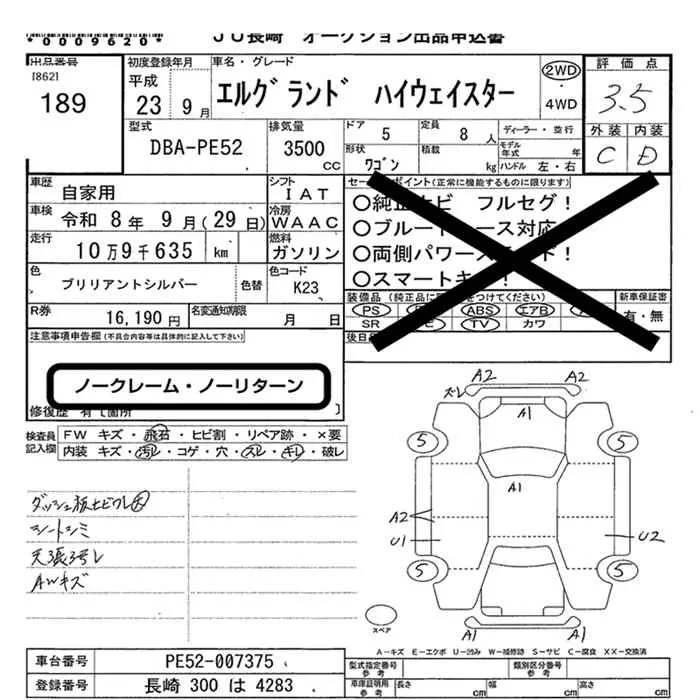 *0009620*
JU長崎 オークション出品申込書
出品番号
[862]
189
初度登録年月
平成
23 9月
車名・グレード
エルグランド ハイウェイスター
2WD
・
4WD
評価点
3.5
外装 内装
C D
型式
DBA-PE52
排気量
3500
CC
ドア 5
定員 8人
ディーラー・並行
形状 ワゴン
積載 kg
モデル年式 年
ハンドル 左・右
車歴
自家用
シフト
IAT
車検
令和 8年 9月(29日)
冷房
WAAC
走行
10万9千635 km
燃料
ガソリン
色
ブリリアントシルバー
色替
色コード
K23
R券
16,190円
名変通知期限
月 日
セールスポイント(正常に機能するものに限ります)
〇純正ナビ フルセグ!
〇ブルートゥース対応
〇両側パワースライド!
〇スマートキー!
装備品(純正品に〇をつけてください)
新車保証書
有・無
PS ABS エアB
SR TV カワ
後日品
注意事項申告欄(不具合内容等は具体的に記入して下さい)
ノークレーム・ノーリターン
修復歴 有[箇所 ]
検査員
記入欄
FW キズ・飛石・ヒビ割・リペア跡・×要
内装 キズ・汚レ・コゲ・穴・スレ・キレ・破レ
シートシミ
AWキズ
A2 A2
ズレ
A1
5 5
A1
A2
U1 U2
5 5
スペア
A-キズ E-エクボ U-凹み W-補修跡 S-サビ C-腐食 XX-交換済
車台番号
PE52-007375
登録番号
長崎 300 は 4283
型式指定番号
参考
類別区分番号
参考
車庫証明用
参考
長さ cm
幅 cm
高さ cm